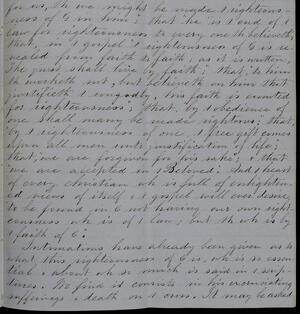 for us, th we might be made t righteous-
ness of G in him: that he is t end of t
law for righteousness to every one th believeth;
that, in t gospel t righteousness of G is re-
vealed from faith to faith; as it is written,
The just shall live by faith; that, to him
th worketh not, but believeth on him that
justifieth t ungodly, his faith is counted
for righteousness; that, by t obedience of
one shall many be made righteous; that,
by t righteousness of one, t free gift comes
upon all men unto justification of life;
that, we are forgiven for his sake; & that
we are accepted in t Beloved. And t heart
of every christian wh is full of enlighten-
ed views of itself & t gospel, will ever desire
to be found in C not having our own right-
eousness wh is of t law; but th wh is by
t faith of C.
Intimations have already been given as to
what this righteousness of C is, wh is so essen-
tial & about wh so much is said in t scrip-
tures. We find it consists in his excruciating
sufferings & death on t cross. It may be asked